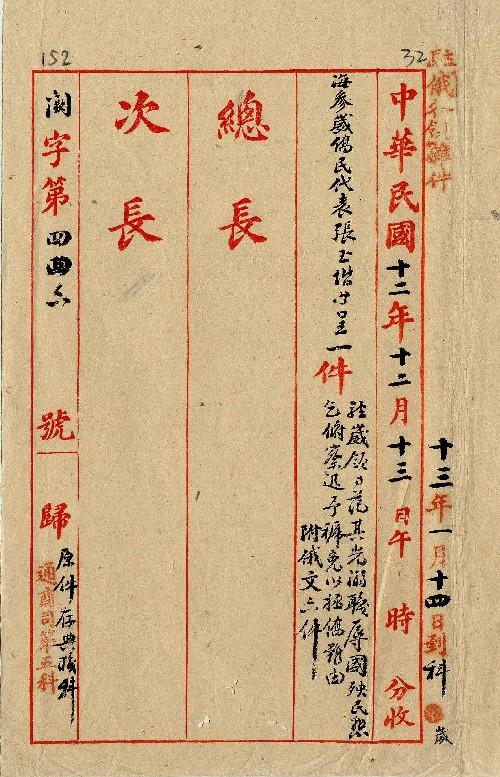 152
32
駐俄
雜件
十三年一月十四日到科
崴
中華民國十二年十二月十三日午 時 分收
海參崴僑民代表張玉堦等呈一件
駐崴領事范其光溺職辱國殃民懇
乞俯察迅予褫免以拯僑難由
附俄文六件
總長
次長
閎字第四四六號歸
原件存典職科
通商司第五科